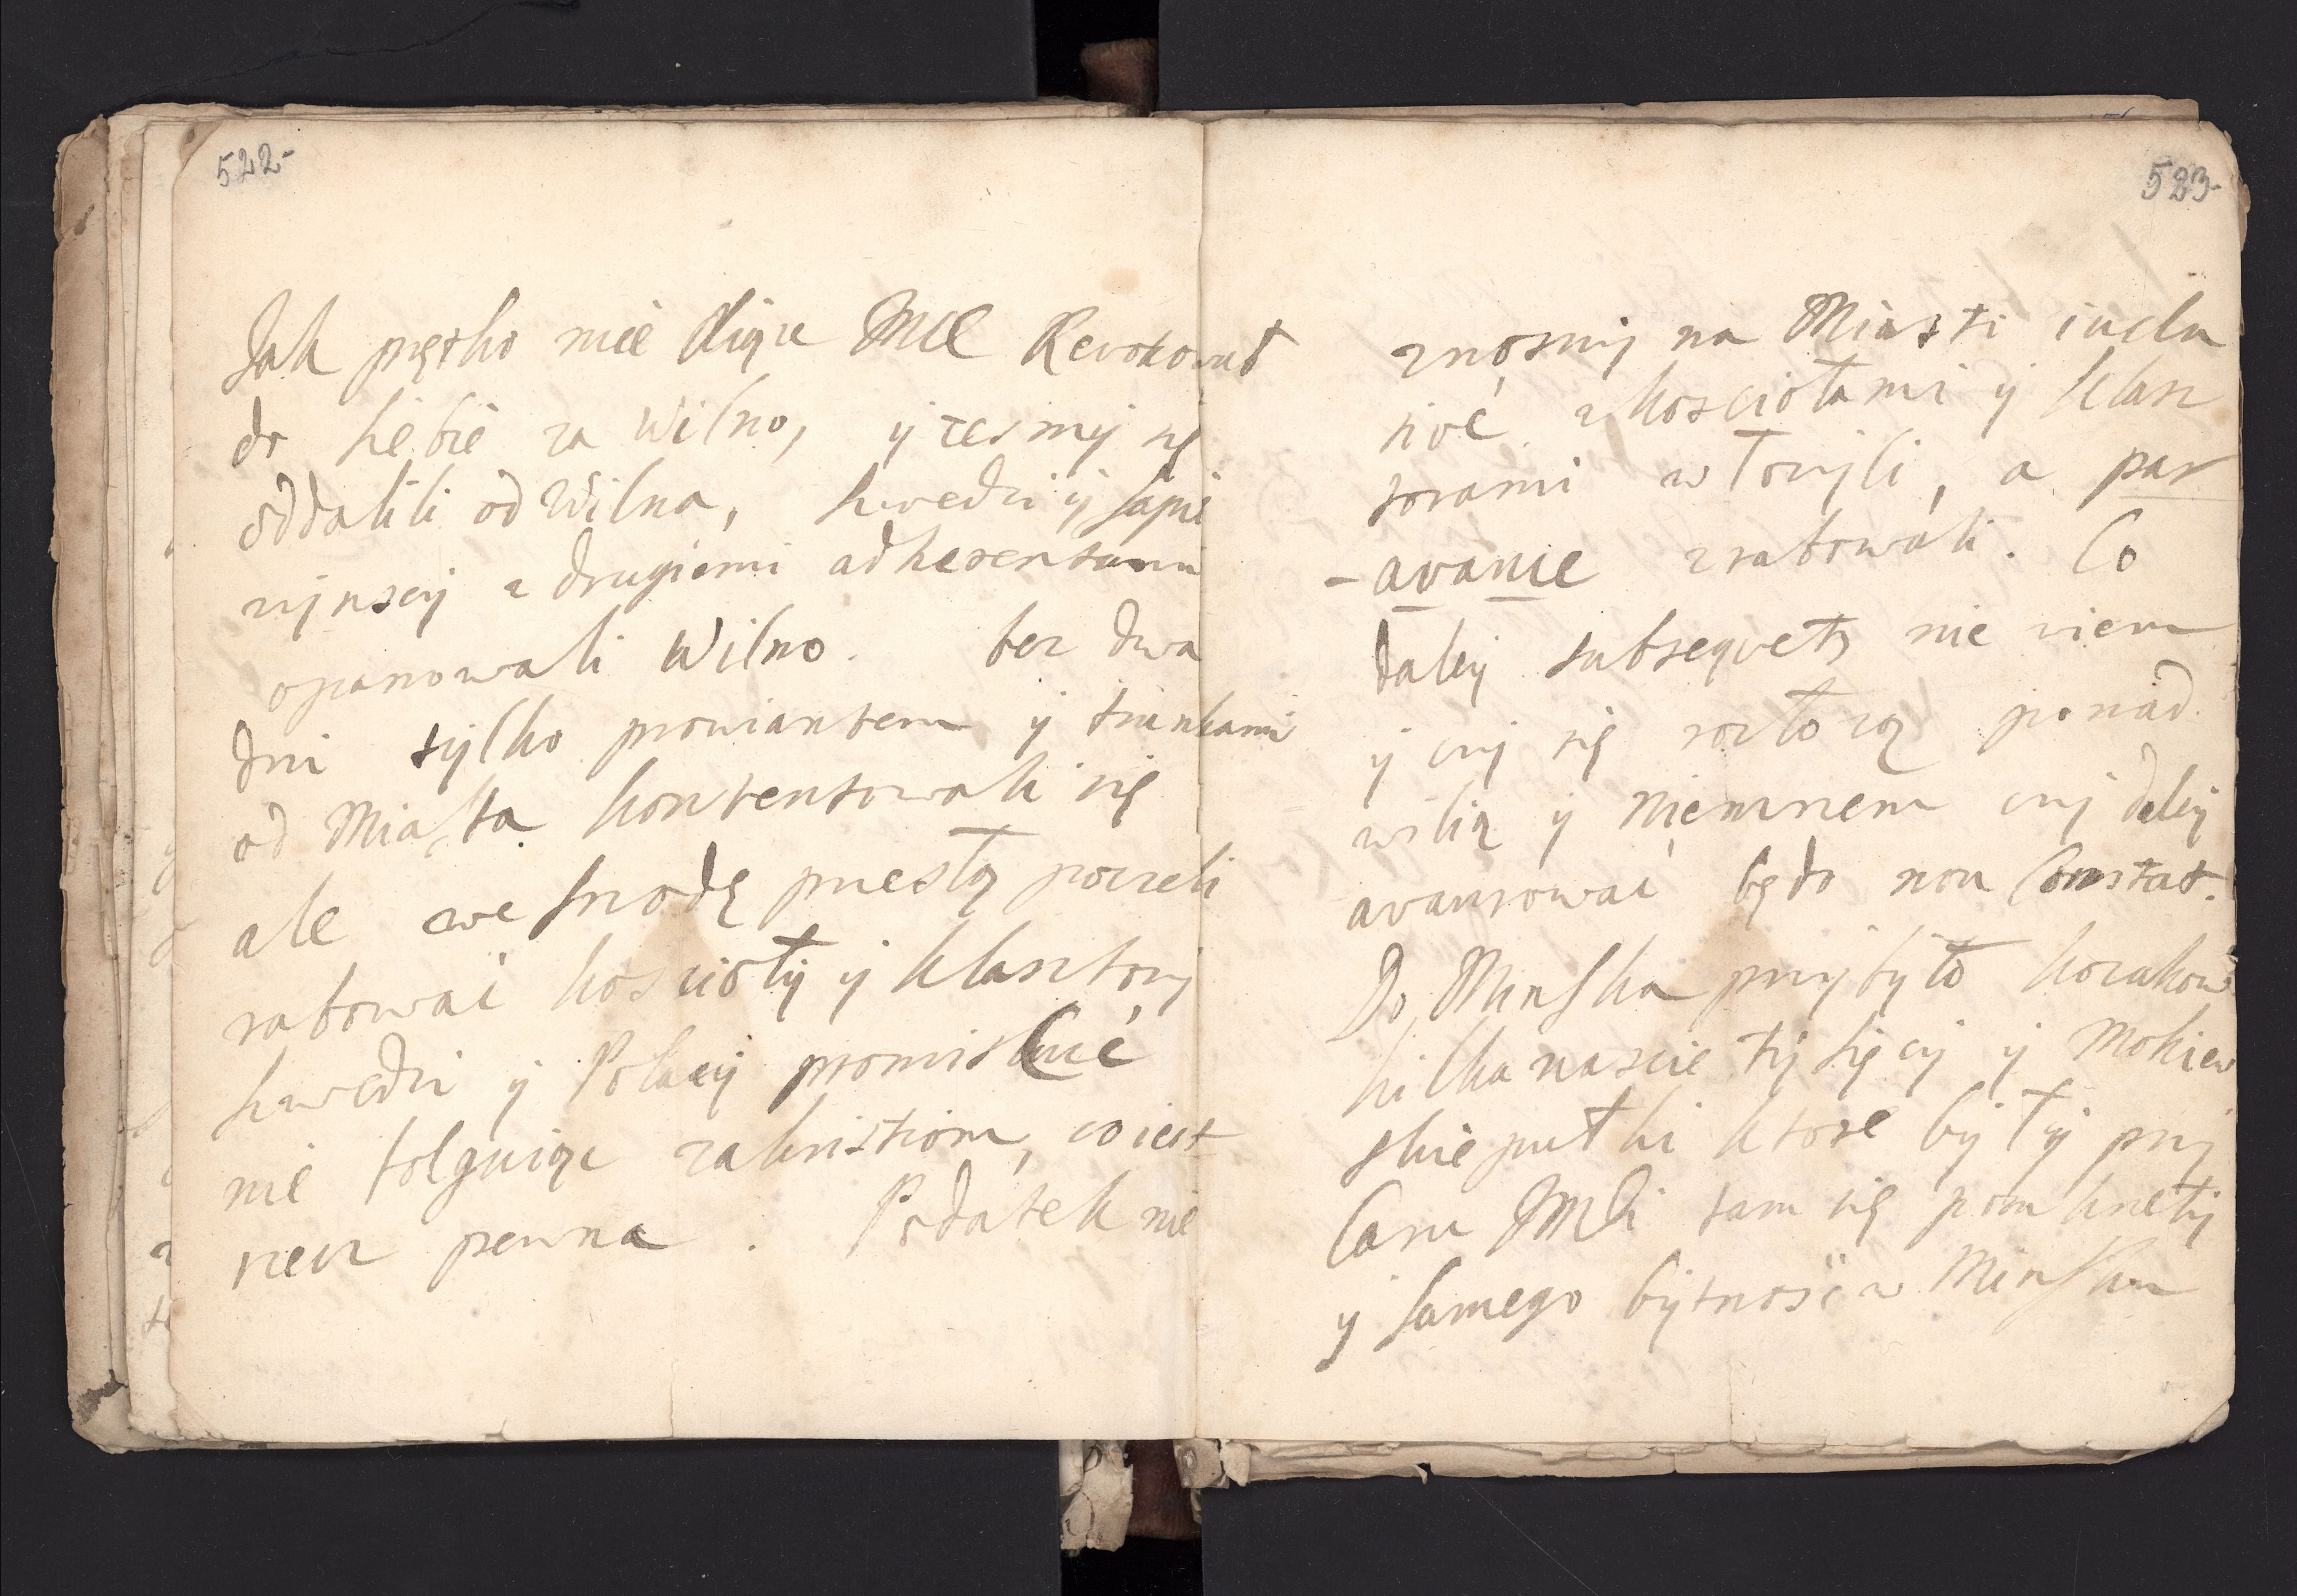 522
Jak prętko nięć Xiąze JMć Rewokował
do siebie za Wilno, y zesmy się
oddalili od Wilna, Szwedzi y Sapie
zynscy z drugiemi adherentami
opanowali Wilno. bez dwa
dni tylko prowiantem y trunkami
od Miasta kontentowali się
ale we srzodę przeszłą poczeli
rabowac koscioły y klasztory
Szwedzi y Polacy promiscue
nie folguiąc zakristiom, co iest
rzecz pewna. Podatek nie
523
znosny na Miasto inclu
sive z kosciołami y klasz
torami włozyli, a par
-avanie zrabowali. Co
daley subsequetr nie wiem
y czy się rozłozą ponad
wilią y Niemnem czy daley
avansowac będo non Constat.
Do Minska przybyło kozakow
kilkanascie tysięcy y Moskiew
skie pułki ktore były przy
Caru JMCi tam się pomkneły
y samego bytnosc w Minsku